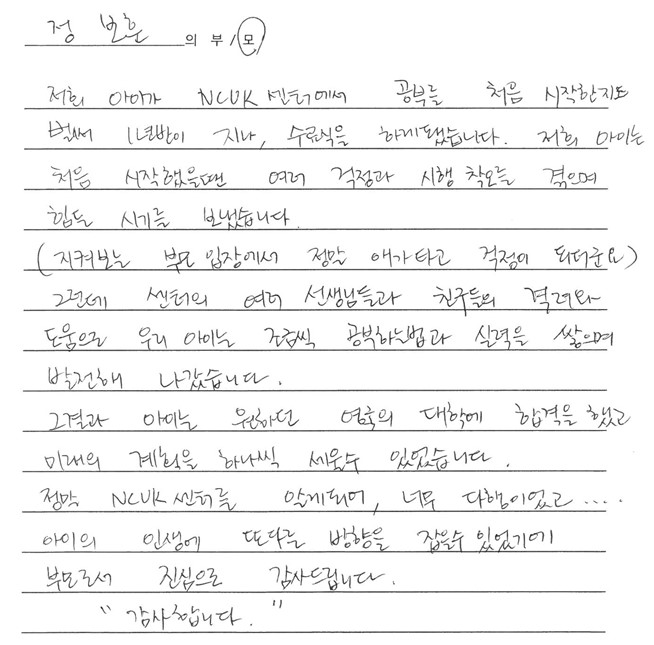 정 보훈 의 부 / 모
저희 아이가 NCUK 센터에서 공부를 처음 시작한지도
벌써 1년반이 지나, 수료식을 하게됐습니다. 저희 아이는
처음 시작했을땐 여러 걱정과 시행 착오를 겪으며
힘든 시기를 보냈습니다.
(지켜보는 부모 입장에서 정말 애가타고 걱정이 되더군요)
그런데 센터의 여러 선생님들과 친구들의 격려와
도움으로 우리 아이는 조금씩 공부하는법과 실력을 쌓으며
발전해 나갔습니다.
그결과 아이는 원하던 영국의 대학에 합격을 했고
미래의 계획을 하나씩 세울수 있었습니다.
정말 NCUK 센터를 알게되어, 너무 다행이었고 ....
아이의 인생에 또다른 방향을 잡을수 있었기에
부모로서 진심으로 감사드립니다.
" 감사합니다. "